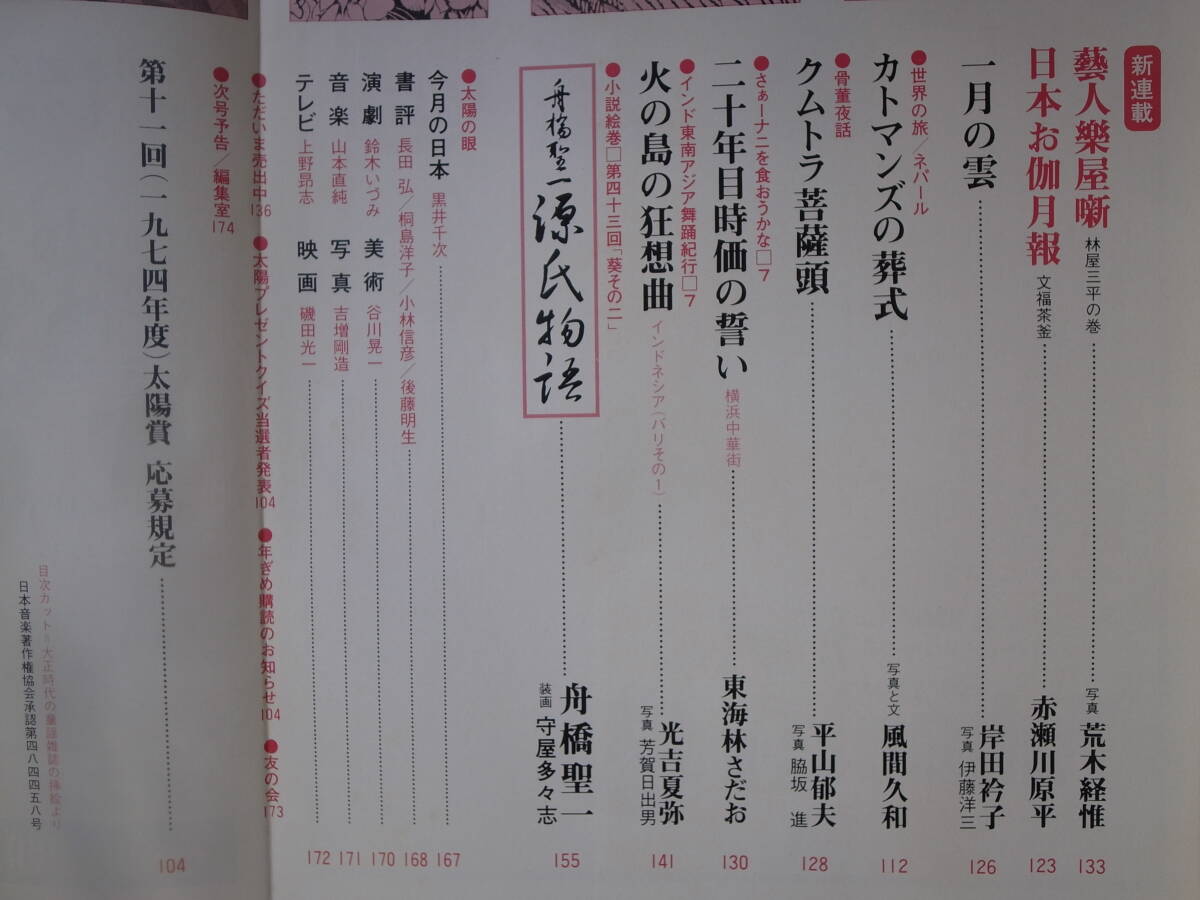 新連載
藝人樂屋噺 林屋三平の巻 写真 荒木経惟 133
日本お伽月報 文福茶釜 赤瀬川原平 123
一月の雲 岸田衿子 写真 伊藤洋三 126
●世界の旅/ネパール
カトマンズの葬式 写真と文 風間久和 112
●骨董夜話
クムトラ菩薩頭 平山郁夫 写真 脇坂 進 128
●さぁーナニを食おうかな□7
二十年目時価の誓い 横浜中華街 東海林さだお 130
●インド東南アジア舞踊紀行□7
火の島の狂想曲 インドネシア(バリその1) 光吉夏弥 写真 芳賀日出男 141
●小説絵巻□第四十三回「葵その二」
舟橋聖一 源氏物語 舟橋聖一 装画 守屋多々志 155
●太陽の眼
今月の日本 黒井千次 167
書評 長田 弘/桐島洋子/小林信彦/後藤明生 168
演劇 鈴木いづみ 美術 谷川晃一 170
音楽 山本直純 写真 吉増剛造 171
テレビ 上野昂志 映画 磯田光一 172
●ただいま売出中136 ●太陽プレゼントクイズ当選者発表104 ●年ぎめ購読のお知らせ104 ●友の会173
●次号予告/編集室174
第十一回(一九七四年度)太陽賞 応募規定 104
目次カット=大正時代の童謡雑誌の挿絵より
日本音楽著作権協会承認第四八四四五八号